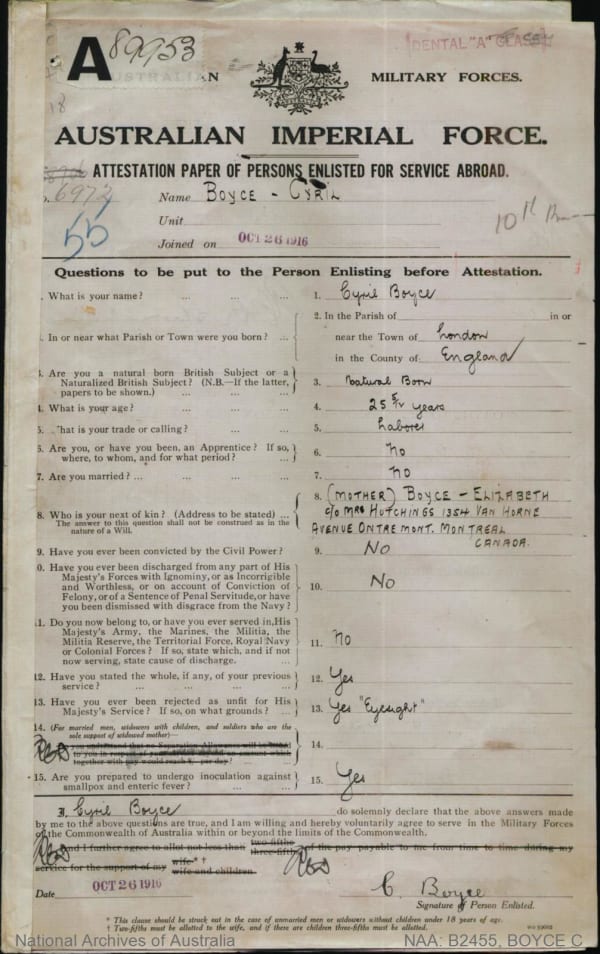 A 89953
DENTAL "A" CLASS
AUSTRALIAN MILITARY FORCES.
AUSTRALIAN IMPERIAL FORCE.
ATTESTATION PAPER OF PERSONS ENLISTED FOR SERVICE ABROAD.
6972 Name BOYCE - CYRIL
55 Unit
10th
Joined on OCT 26 1916
Questions to be put to the Person Enlisting before Attestation.
. What is your name? ... ... ... 1. Cyril Boyce
2. In the Parish of in or
. In or near what Parish or Town were you born? ... near the Town of London
in the County of England
3. Are you a natural born British Subject or a
Naturalized British Subject? (N.B.—If the latter,
papers to be shown.) ... ... ... 3. Natural Born
4. What is your age? ... ... ... 4. 25 5/12 years
5. What is your trade or calling? ... ... 5. Laborer
6. Are you, or have you been, an Apprentice? If so,
where, to whom, and for what period? ... 6. No
7. Are you married? ... ... ... ... 7. No
8. (MOTHER) BOYCE - ELIZABETH
8. Who is your next of kin? (Address to be stated) ... c/o MRS HUTCHINGS 1354 VAN HORNE
The answer to this question shall not be construed as in the
nature of a Will. AVENUE ONTREMONT. MONTREAL
CANADA.
9. Have you ever been convicted by the Civil Power? 9. No
0. Have you ever been discharged from any part of His
Majesty's Forces with Ignominy, or as Incorrigible
and Worthless, or on account of Conviction of
Felony, or of a Sentence of Penal Servitude, or have
you been dismissed with disgrace from the Navy? 10. No
1. Do you now belong to, or have you ever served in, His
Majesty's Army, the Marines, the Militia, the
Militia Reserve, the Territorial Force, Royal Navy
or Colonial Forces? If so, state which, and if not
now serving, state cause of discharge. ... 11. No
12. Have you stated the whole, if any, of your previous
service? ... ... ... ... 12. Yes
13. Have you ever been rejected as unfit for His
Majesty's Service? If so, on what grounds? ... 13. Yes "Eyesight"
14. (For married men, widowers with children, and soldiers who are the
sole support of widowed mother)—
you understand that no Separation Allowance will be issued
to you in respect of your
together with pay would reach per day? 14.
15. Are you prepared to undergo inoculation against
smallpox and enteric fever? ... ... 15. Yes
I, Cyril Boyce do solemnly declare that the above answers made
by me to the above questions are true, and I am willing and hereby voluntarily agree to serve in the Military Forces
of the Commonwealth of Australia within or beyond the limits of the Commonwealth.
And I further agree to allot not less than two-fifths three-fifths of the pay payable to me from time to time during my
service for the support of my wife* † wife and children.
Date OCT 26 1916 C. Boyce
Signature of Person Enlisted.
* This clause should be struck out in the case of unmarried men or widowers without children under 18 years of age.
† Two-fifths must be allotted to the wife, and if there are children three-fifths must be allotted.
National Archives of Australia NAA: B2455, BOYCE C